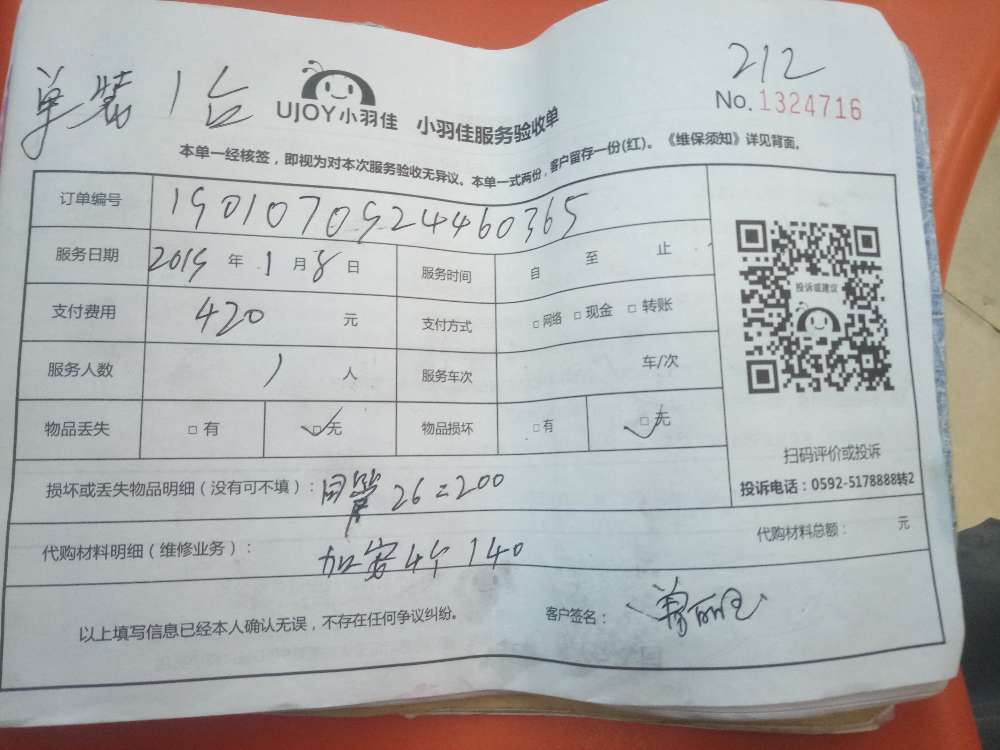 单装1台
212
UJOY小羽佳 小羽佳服务验收单
No. 1324716
本单一经核签，即视为对本次服务验收无异议。本单一式两份，客户留存一份(红)。《维保须知》详见背面。
订单编号 1901070924460365
服务日期 2019年1月8日 服务时间 自 至 止
支付费用 420 元 支付方式 □网络 □现金 □转账
服务人数 1 人 服务车次 车/次
物品丢失 □有 □无 物品损坏 □有 □无
投诉或建议
扫码评价或投诉
投诉电话：0592-5178888转2
损坏或丢失物品明细（没有可不填）： 管 26=200
代购材料明细（维修业务）： 加安4个140
代购材料总额： 元
以上填写信息已经本人确认无误，不存在任何争议纠纷。
客户签名：